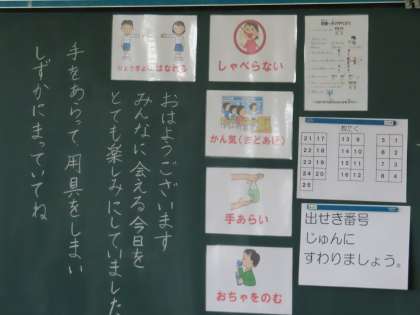 おはようございます
みんなに会える今日を
とても楽しみにしていました
手をあらって、用具をしまい
しずかにまっていてね
しゃべらない
かん気(まどあけ)
手あらい
おちゃをのむ
21 17
22 18
23 19
24 20
25
13 9
14 10
15 11
16 12
5 1
6 2
7 3
8 4
出せき番号
じゅんに
すわりましょう。